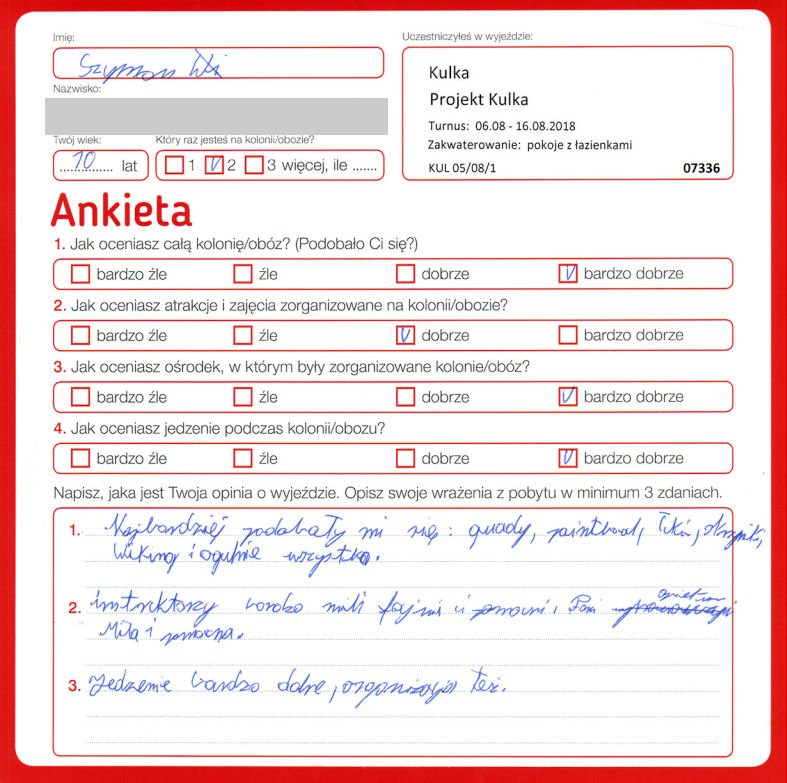 Imię:
Szymon
Nazwisko:
Twój wiek:
10 lat
Który raz jesteś na kolonii/obozie?
1 V 2 3 więcej, ile .......
Uczestniczyłeś w wyjeździe:
Kulka
Projekt Kulka
Turnus: 06.08 - 16.08.2018
Zakwaterowanie: pokoje z łazienkami
KUL 05/08/1 07336
Ankieta
1. Jak oceniasz całą kolonię/obóz? (Podobało Ci się?)
bardzo źle źle dobrze V bardzo dobrze
2. Jak oceniasz atrakcje i zajęcia zorganizowane na kolonii/obozie?
bardzo źle źle V dobrze bardzo dobrze
3. Jak oceniasz ośrodek, w którym były zorganizowane kolonie/obóz?
bardzo źle źle dobrze V bardzo dobrze
4. Jak oceniasz jedzenie podczas kolonii/obozu?
bardzo źle źle dobrze V bardzo dobrze
Napisz, jaka jest Twoja opinia o wyjeździe. Opisz swoje wrażenia z pobytu w minimum 3 zdaniach.
1. Najbardziej podobały mi się: quady, paintboal, skrzynki,
Wiking i ogulnie wszystko.
2. instrktorzy bardzo mili fajni i pomocni, Pani
Miła i pomocna.
3. Jedzenie bardzo dobre, organizacja też.